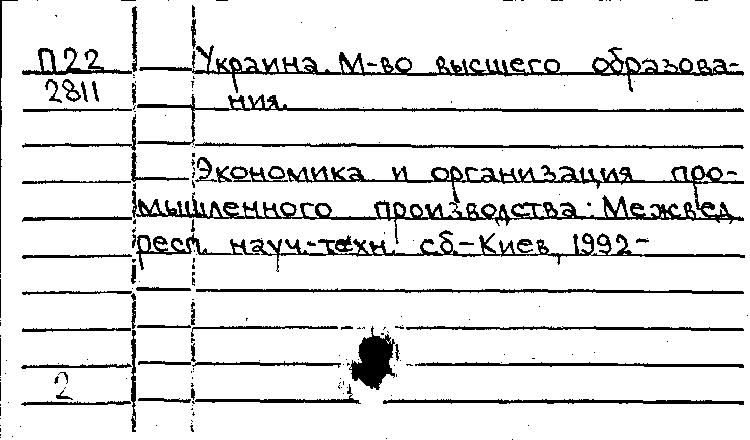 П22 Украина. М-во высшего образова-
2811 ния.
Экономика и организация про-
мышленного производства: Межвед.
респ. науч.-техн. сб.-Киев, 1992-
2